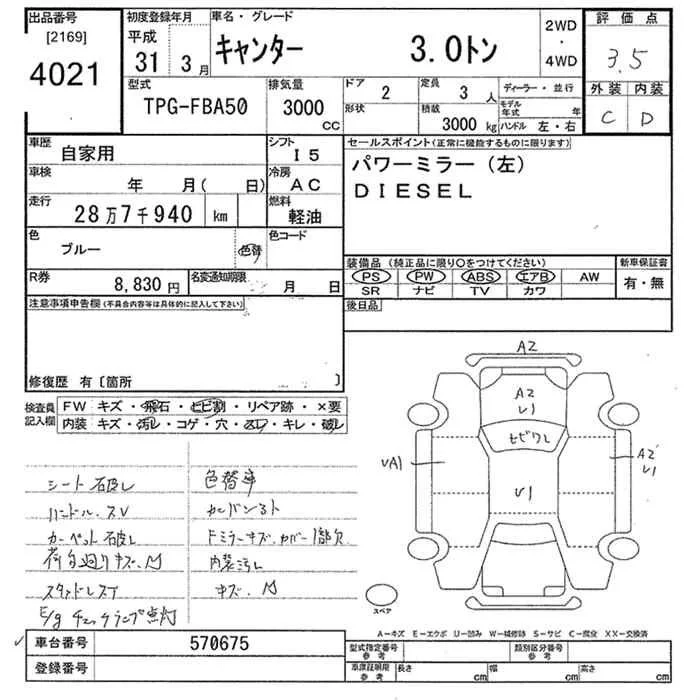 出品番号 初度登録年月 車名・グレード 2WD 評価点
[2169] 平成 ・
4021 31 3月 キャンター 3.0トン 4WD 3.5
型式 排気量 ドア 定員 ディーラー・並行 外装 内装
TPG-FBA50 3000cc 2 3人 モデル年式 年 C D
形状 積載 3000kg ハンドル 左・右
車歴 自家用 シフト I5 セールスポイント(正常に機能するものに限ります)
車検 年 月( 日) 冷房 AC パワーミラー(左)
走行 28万7千940 km 燃料 軽油 DIESEL
色 ブルー 色替 色コード
装備品 (純正品に限り○をつけてください) 新車保証書
R券 8,830円 名変通知期限 月 日 PS PW ABS エアB AW 有・無
SR ナビ TV カワ
注意事項申告欄(不具合内容等は具体的に記入して下さい) 後日品
修復歴 有〔箇所 〕
検査員記入欄 FW キズ・飛石・ヒビ割・リペア跡・×要
内装 キズ・汚レ・コゲ・穴・スレ・キレ・破レ
A2
A2
U1
ヒビワレ
UA1
A2
U1
U1
シート破レ 色替車
ハンドル.スレ
カーペット破レ Fミラーキズ.カバー1部欠
荷台廻りキズ.凹 内装汚レ
スタッドレスT キズ.凹
E/gチェックランプ点灯
スペア
A-キズ E-エクボ U-凹み W-補修跡 S-サビ C-腐食 XX-交換済
車台番号 570675 型式指定番号 参考 類別区分番号 参考
登録番号 車庫証明用 参考 長さ cm 幅 cm 高さ cm